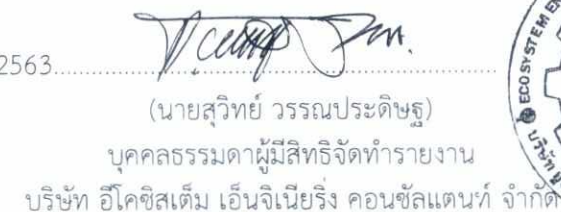 2563
(นายสุวิทย์ วรรณประดิษฐ)
บุคคลธรรมดาผู้มีสิทธิจัดทำรายงาน
บริษัท อีโคซิสเต็ม เอ็นจิเนียริ่ง คอนซัลแตนท์ จำกัด
ECOSYSTEM
บริษัท